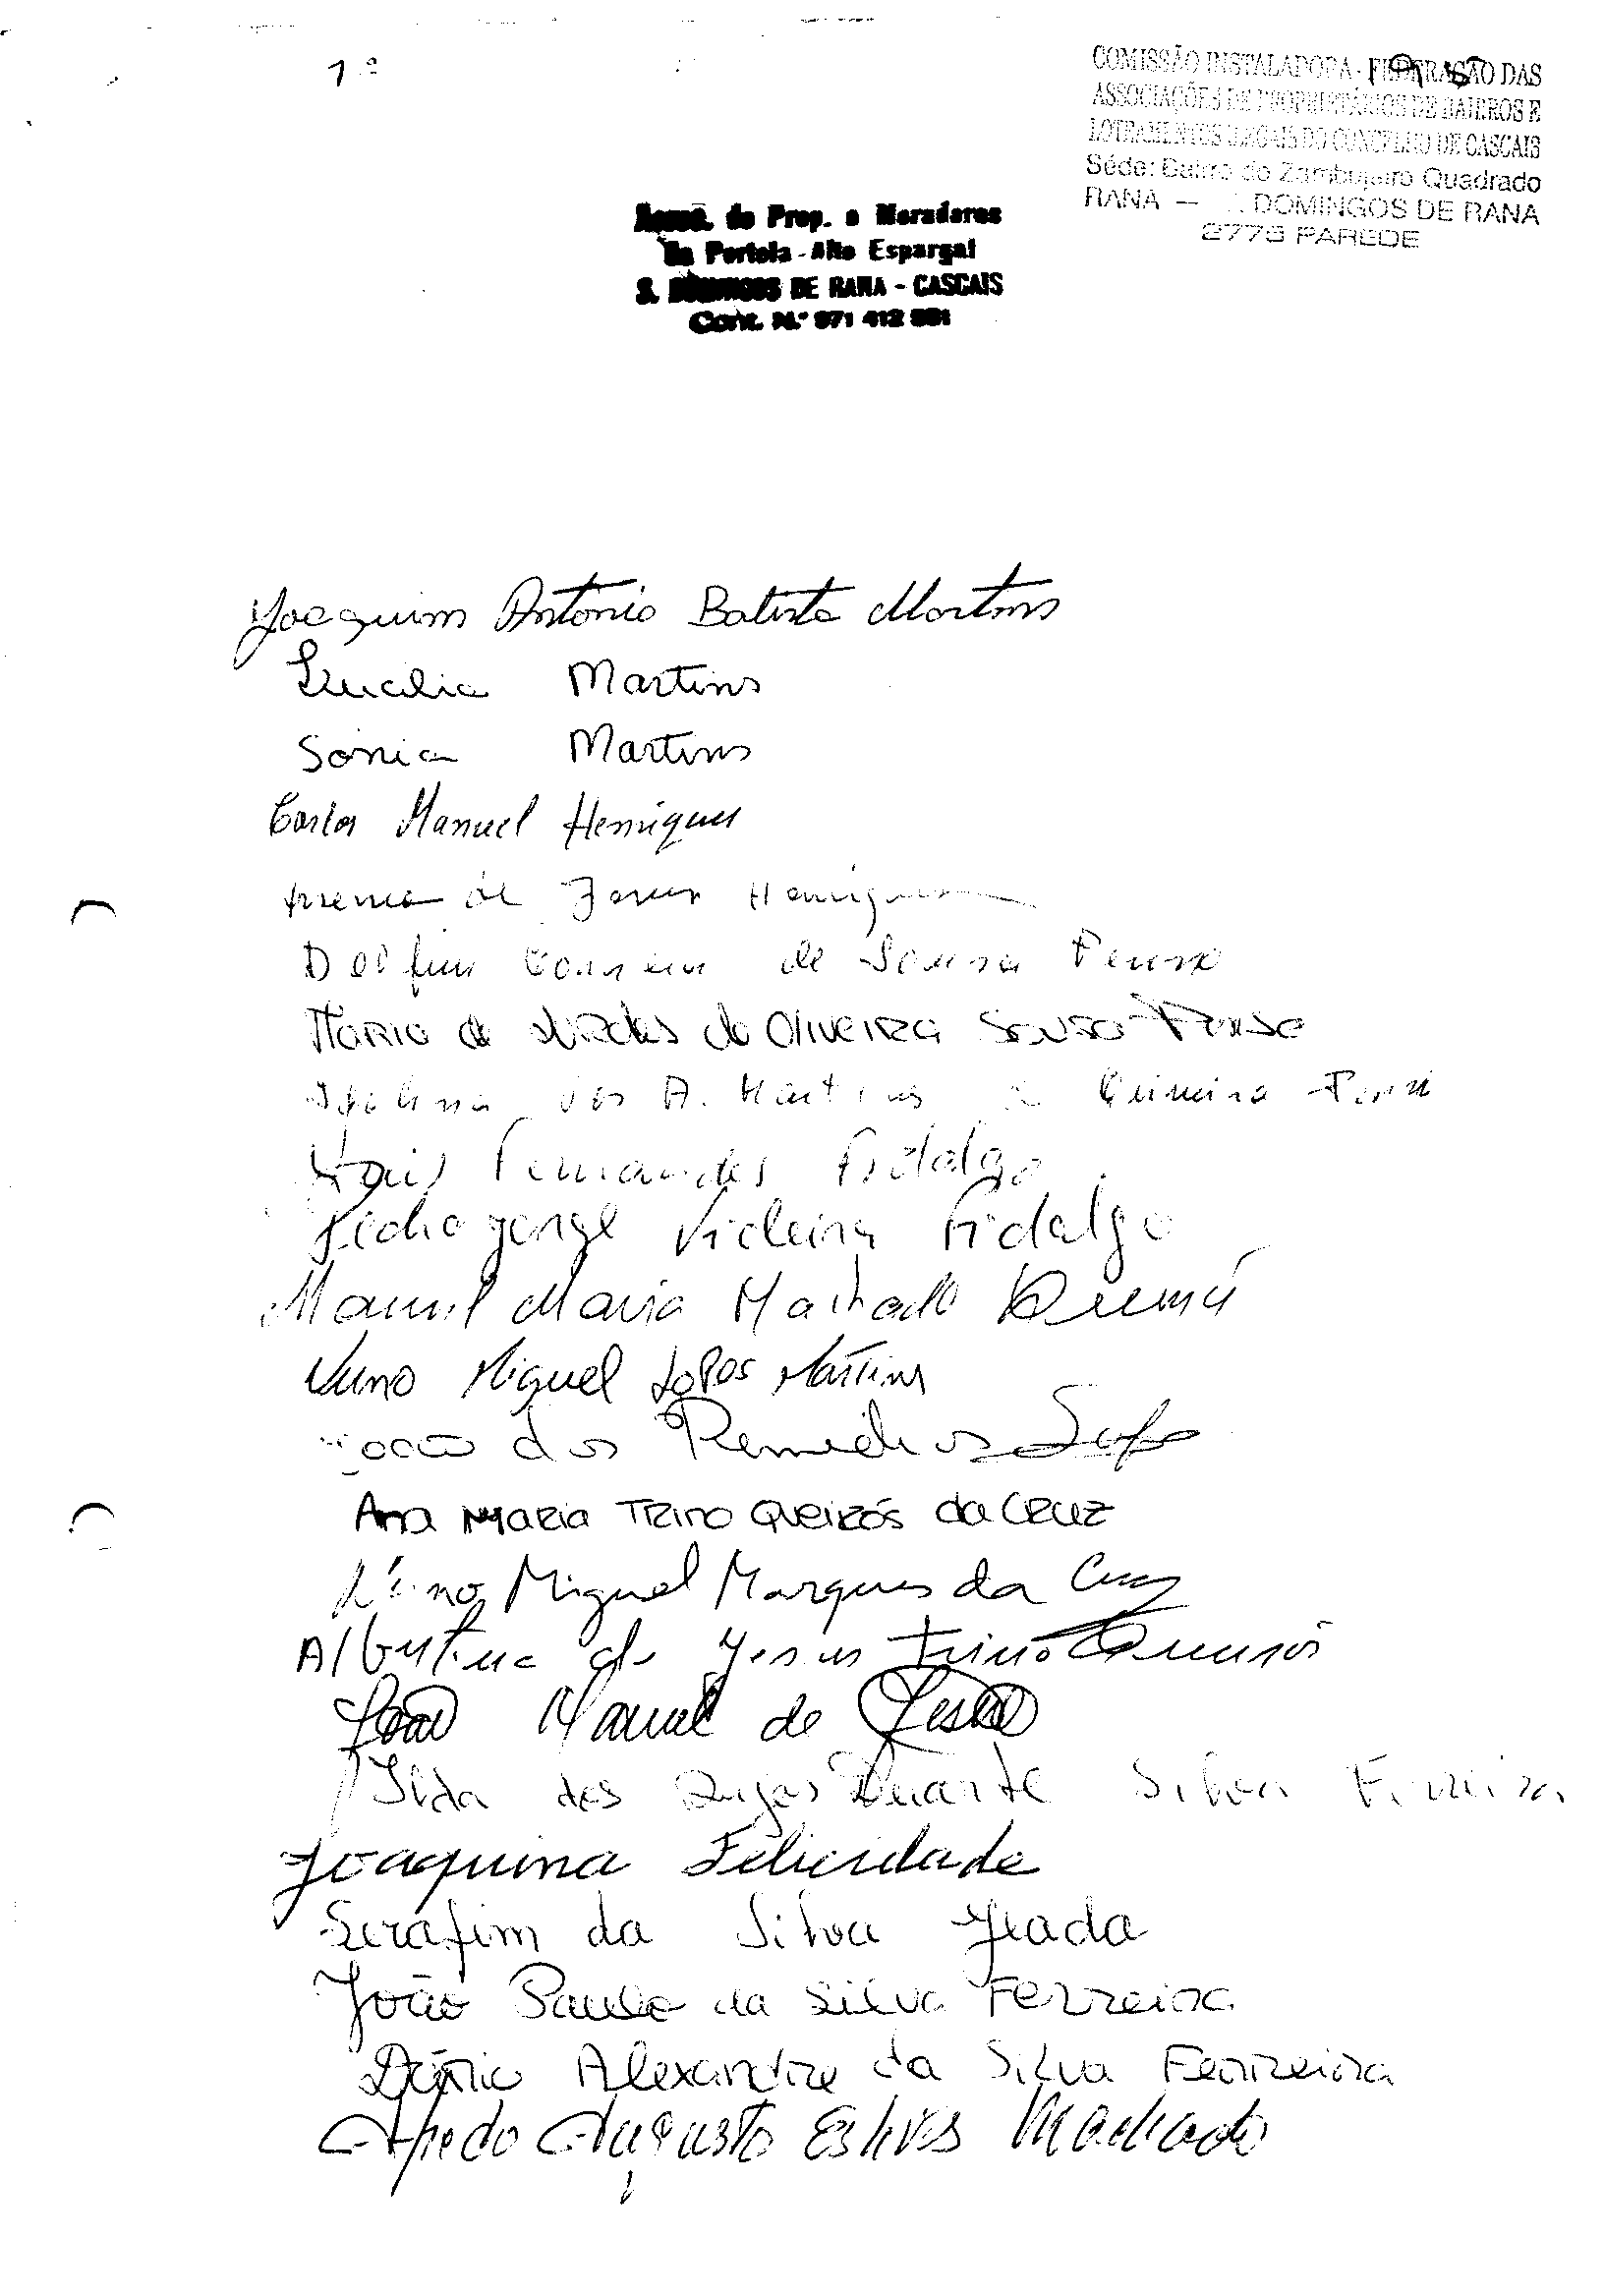 1º
COMISSÃO INSTALADORA - FEDERAÇÃO DAS
ASSOCIAÇÕES DE PROPRIETÁRIOS DE BAIRROS E
LOTEAMENTOS ILEGAIS DO CONCELHO DE CASCAIS
Séde: Bairro do Zambujeiro Quadrado
RANA — S. DOMINGOS DE RANA
2775 PAREDE
Assoc. de Prop. e Moradores
Da Portela - Alto Espargal
S. DOMINGOS DE RANA - CASCAIS
Cont. N.º 971 412 881
Joaquim António Batista Martins
Lucilia Martins
Sonia Martins
Carlos Manuel Henriques
de Jesus Henriques
Delfim de Sousa
Maria de Lurdes de Oliveira Sousa
A. Martins
Fernandes Fidalgo
Pedro Jorge Videira Fidalgo
Manuel Maria Machado
Nuno Miguel Lopes Martins
João dos Remedios
Ana Maria Trino Queirós da Cruz
Miguel Marques da Cruz
Albertina de Jesus Trino
João Manuel de
Ilda dos Anjos Duarte Silva Ferreira
Joaquina Felicidade
Serafim da Silva
João Paulo da Silva Ferreira
Dário Alexandre da Silva Ferreira
Alfredo Augusto Esteves Machado